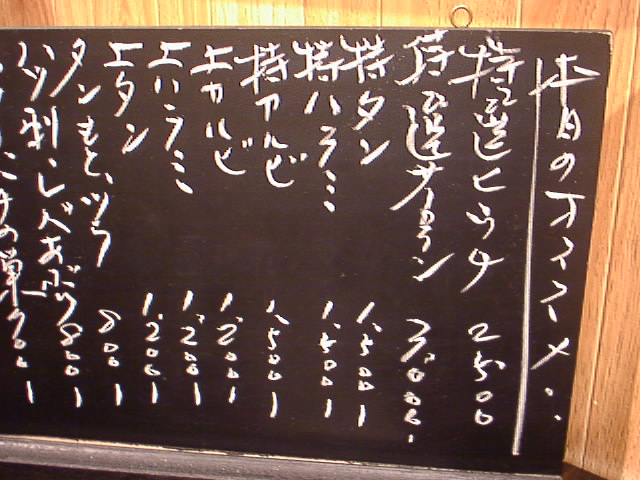 本日のオススメ..
特選ヒウチ 2500
特選サーロイン 3,000.
特タン 1,500 |
特ハラミ 1,500 |
特カルビ 1,500 |
上カルビ 1,200 |
上ハラミ 1,200 |
上タン 1,200 |
タンもと、ツラ 800 |
ハツ刺、レバあぶり 800 |